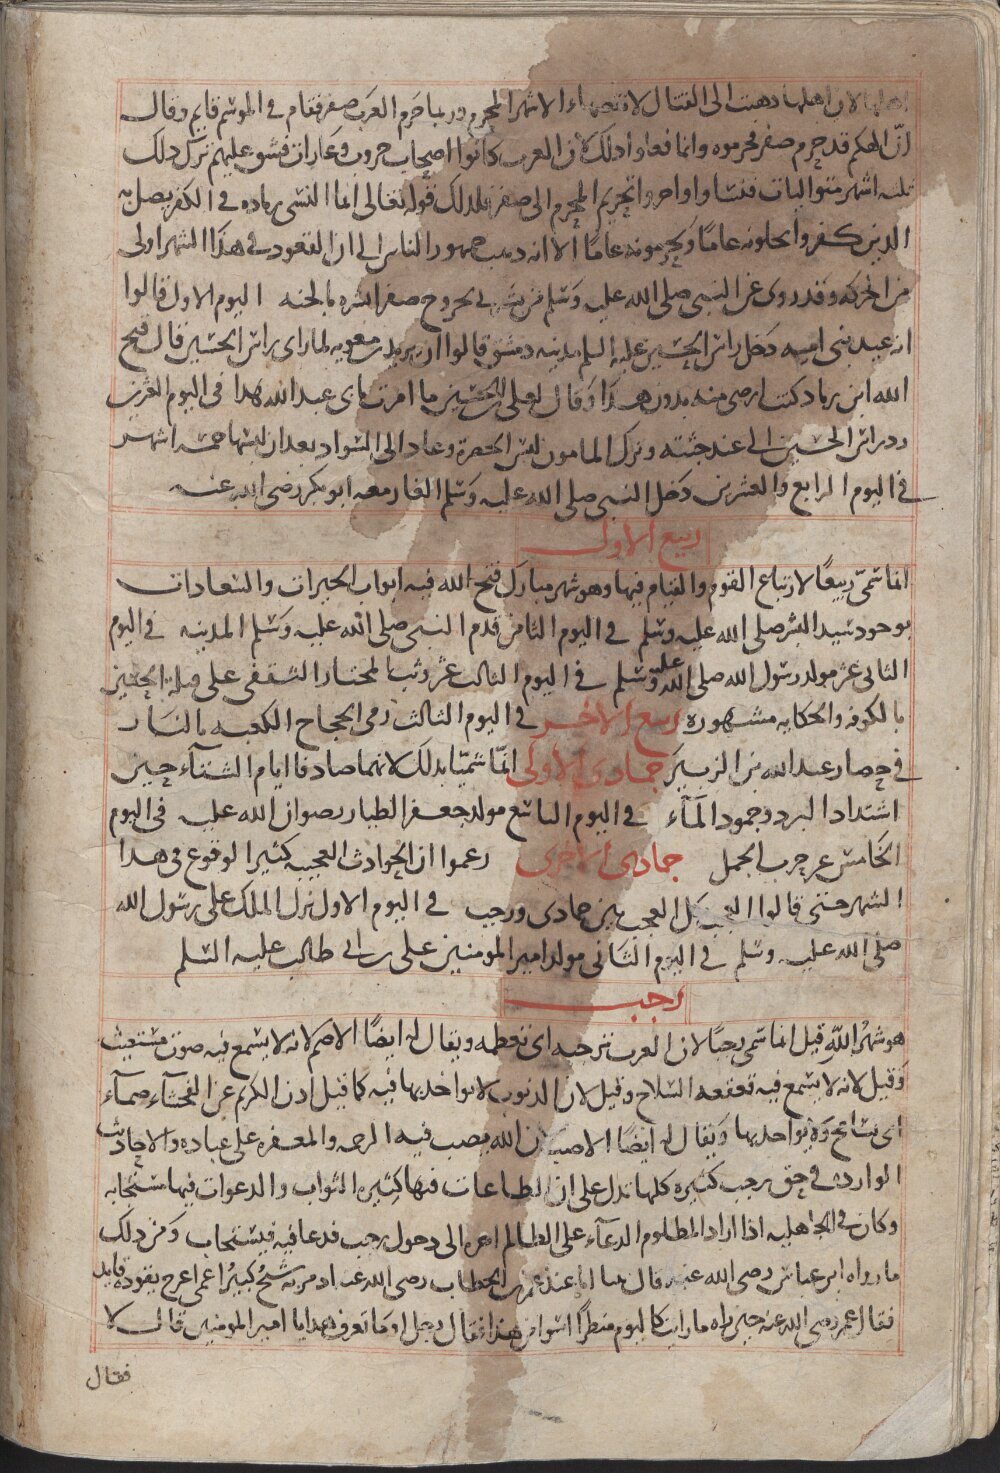 اهلها لان اهلها ذهبت الى القتال لانقضاء الاشهر الحرم وربما حرم العرب صفر فقام في الموسم قايم وقال
ان الهكم قد حرم صفر فحرموه وانما فعلوا ذلك لان العرب كانوا اصحاب حروب وغارات فشق عليهم ترك ذلك
ثلثه اشهر متواليات فنشاوا واخروا تحريم المحرم الى صفر فلذلك قوله تعالى انما النسى زياده في الكفر يضل به
الذين كفروا يحلونه عاما ويحرمونه عاما الا انه ذهب جمهور الناس الى ان القعود في هذا الشهر اولى
من الحركه وقد روى عن النبي صلى الله عليه وسلم من بشرني بخروج صفر ابشره بالجنه اليوم الاول قالوا
انه عيد بنى اميه دخل راس الحسين عليه السلم مدينه دمشق قالوا ان يزيد بن معويه لما راى راس الحسين قال قبح
الله ابن زياد كنت ارضى منه بدون هذا وقال لعلى بن الحسين ما امرت بابى عبد الله هذا في اليوم العشرين
رد راس الحسين الى عند جثته وترك المامون لبس الخضرة وعاد الى السواد بعد ان لبسها خمسه اشهر
في اليوم الرابع والعشرين دخل النبي صلى الله عليه وسلم الغار معه ابو بكر رضى الله عنه
ربيع الاول
انما سمى ربيعا لارتباع القوم والقيام فيها وهو شهر مبارك فتح الله فيه ابواب الخيرات والسعادات
بوجود سيد البشر صلى الله عليه وسلم في اليوم الثامن قدم النبي صلى الله عليه وسلم المدينه في اليوم
الثانى عشر مولد رسول الله صلى الله عليه وسلم في اليوم الثالث عشر وثب المختار الثقفى على قتله الحسين
بالكوفه والحكايه مشهوره ربيع الاخر في اليوم الثالث رمى الحجاج الكعبه بالنار
في حصار عبد الله بن الزبير جمادى الاولى انما سميا بذلك لانهما صادفا ايام الشتاء حين
اشتداد البرد وجمود المآء في اليوم التاسع مولد جعفر الطيار رضوان الله عليه في اليوم
الخامس عشر حرب الجمل جمادى الاخرى زعموا ان الحوادث العجيبه كثير الوقوع في هذا
الشهر حتى قالوا العجب كل العجب بين جمادى ورجب في اليوم الاول نزل الملك على رسول الله
صلى الله عليه وسلم في اليوم الثانى مولد امير المومنين على بن ابى طالب عليه السلم
رجب
هو شهر الله قيل انما سمى رجبا لان العرب ترجبه اى تعظمه ويقال له ايضا الاصم لانه لا يسمع فيه صوت مستغيث
وقيل لانه لا يسمع فيه قعقعه السلاح وقيل لان الذنوب لا يواخذ بها فيه كما قيل اذن الكريم عن الفحشآء صمآء
اى يسامح ولا يواخذ بها ويقال له ايضا الاصب لان الله يصب فيه الرحمه والمغفره على عباده والاحاديث
الوارده في حق رجب كثيره كلها تدل على ان الطاعات فيها كثيره الثواب والدعوات فيها مستجابه
وكان في الجاهليه اذا اراد المظلوم الدعآء على الظالم اخره الى دخول رجب فدعا فيه فيستجاب ومن ذلك
ما رواه ابن عباس رضى الله عنه قال بينا انا عند عمر بن الخطاب رضى الله عنه اذ مر به شيخ كبير اعمى اعرج يقوده قايد
فقال عمر رضى الله عنه حين راه ما رايت كاليوم منظرا اسوا من هذا فقال رجل اوما تعرف هذا يا امير المومنين قال لا
فقال